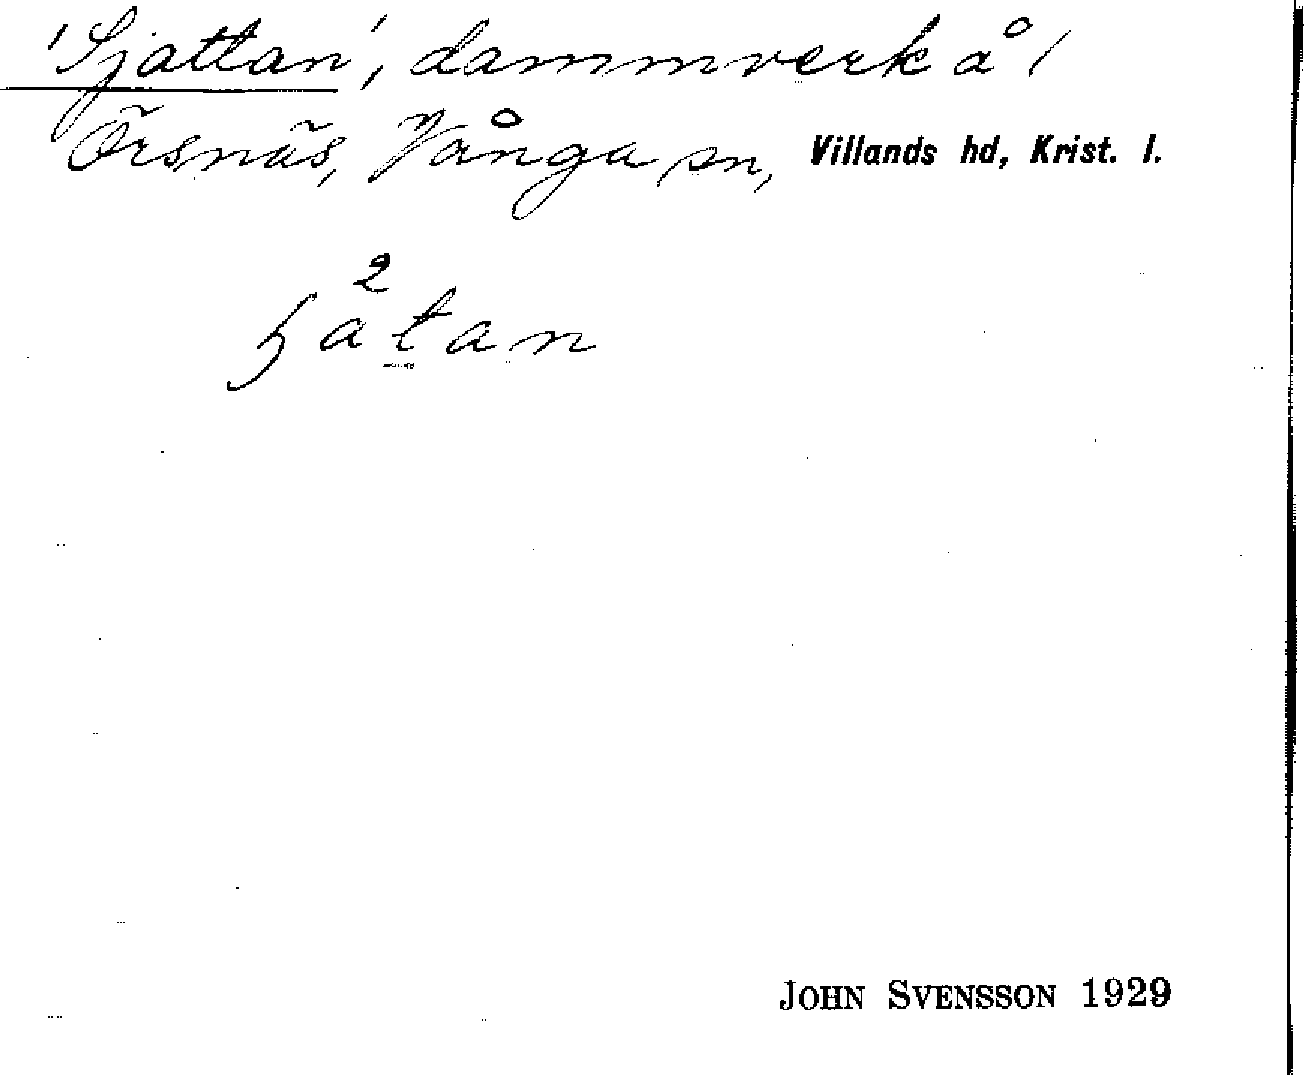 'Sjattan', dammverk å /
Örsnäs, Vånga sn, Villands hd, Krist. l.
2
ɧatan
JOHN SVENSSON 1929